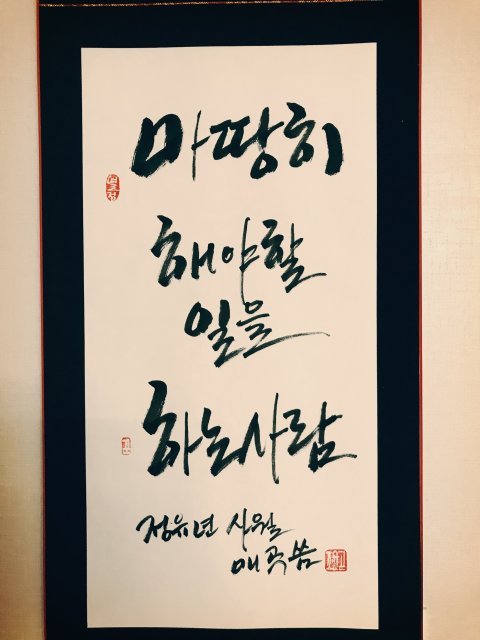 마땅히
해야할
일을
하는사람
정유년 사월
매곡 씀